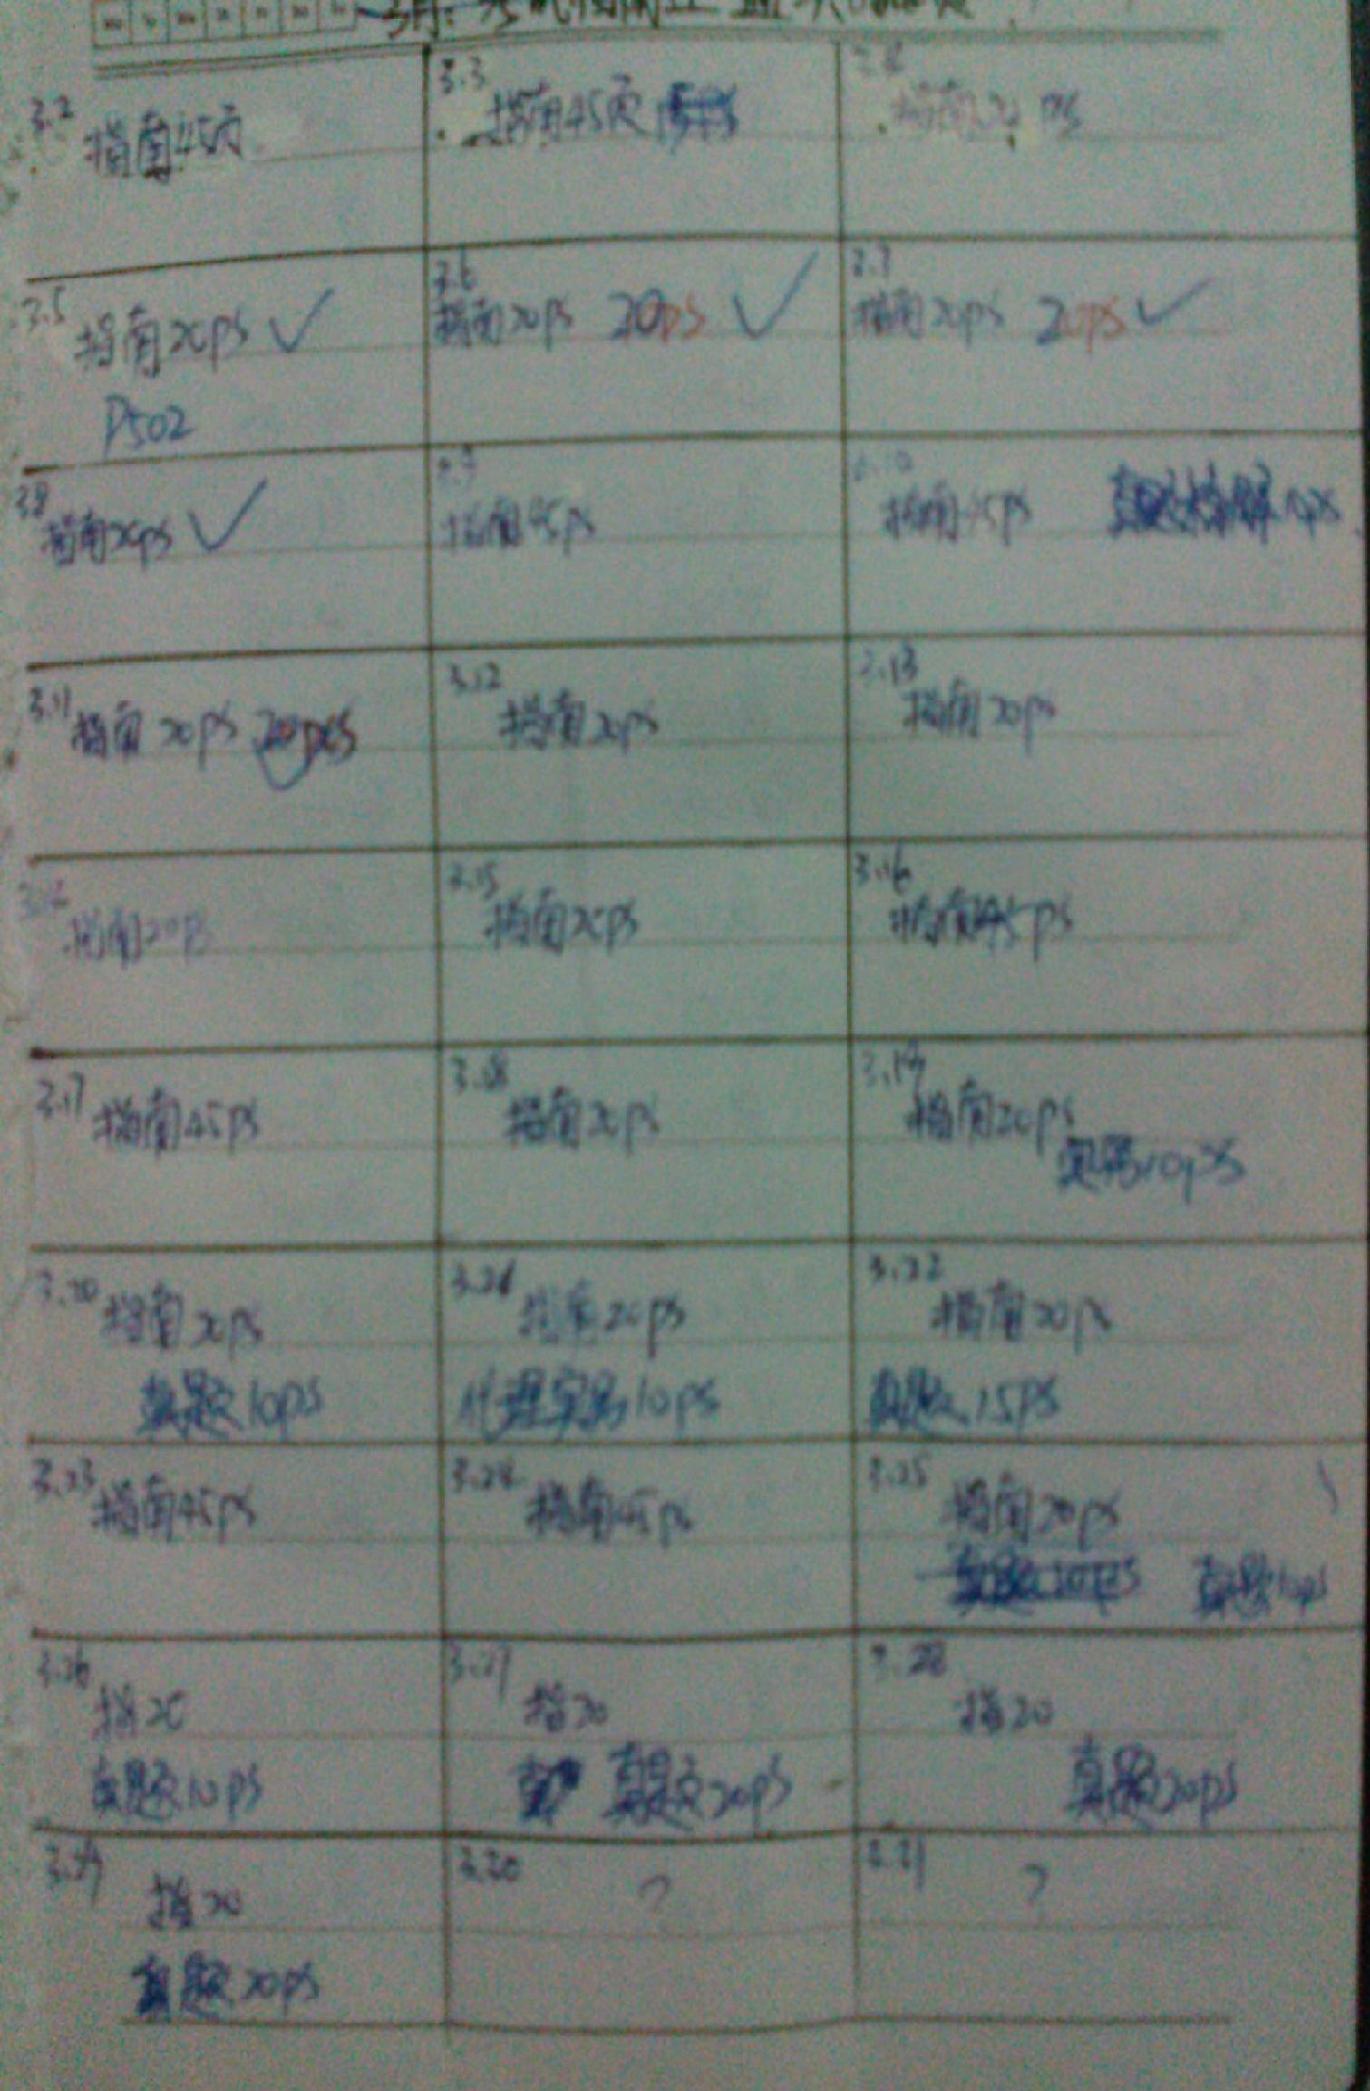 3月:
3.2
指南45页
3.3
指南45页
指南
3.5
指南20ps ✓
P502
3.6
指南20ps 20ps ✓
3.7
指南20ps 20ps ✓
3.8
指南20ps ✓
3.9
指南45ps
3.10
指南45ps
3.11
指南20ps 20ps
3.12
指南20ps
3.13
指南20ps
3.14
指南20ps
3.15
指南20ps
3.16
指南45ps
3.17
指南45ps
3.18
指南20ps
3.19
指南20ps
10ps
3.20
指南20ps
真题10ps
3.21
指南20ps
10ps
3.22
指南20ps
真题15ps
3.23
指南45ps
3.24
指南45ps
3.25
指南20ps
真题10ps
3.26
指20
真题10ps
3.27
指20
真题20ps
3.28
指20
真题20ps
3.29
指20
真题20ps
3.30
?
3.31
?